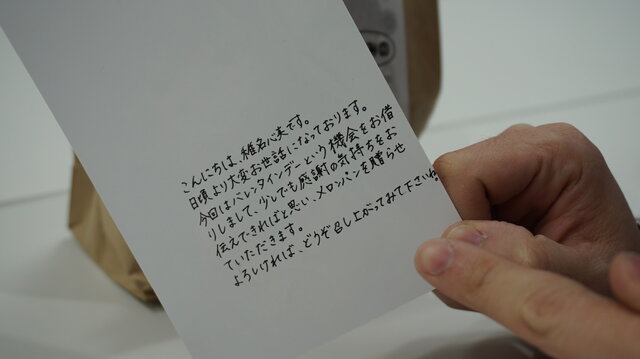 こんにちは、椎名心実です。
日頃より大変お世話になっております。
今回はバレンタインデーという機会をお借
りしまして、少しでも感謝の気持ちをお
伝えできればと思い、メロンパンを贈らせ
ていただきます。
よろしければ、どうぞ召し上がってみて下さいね